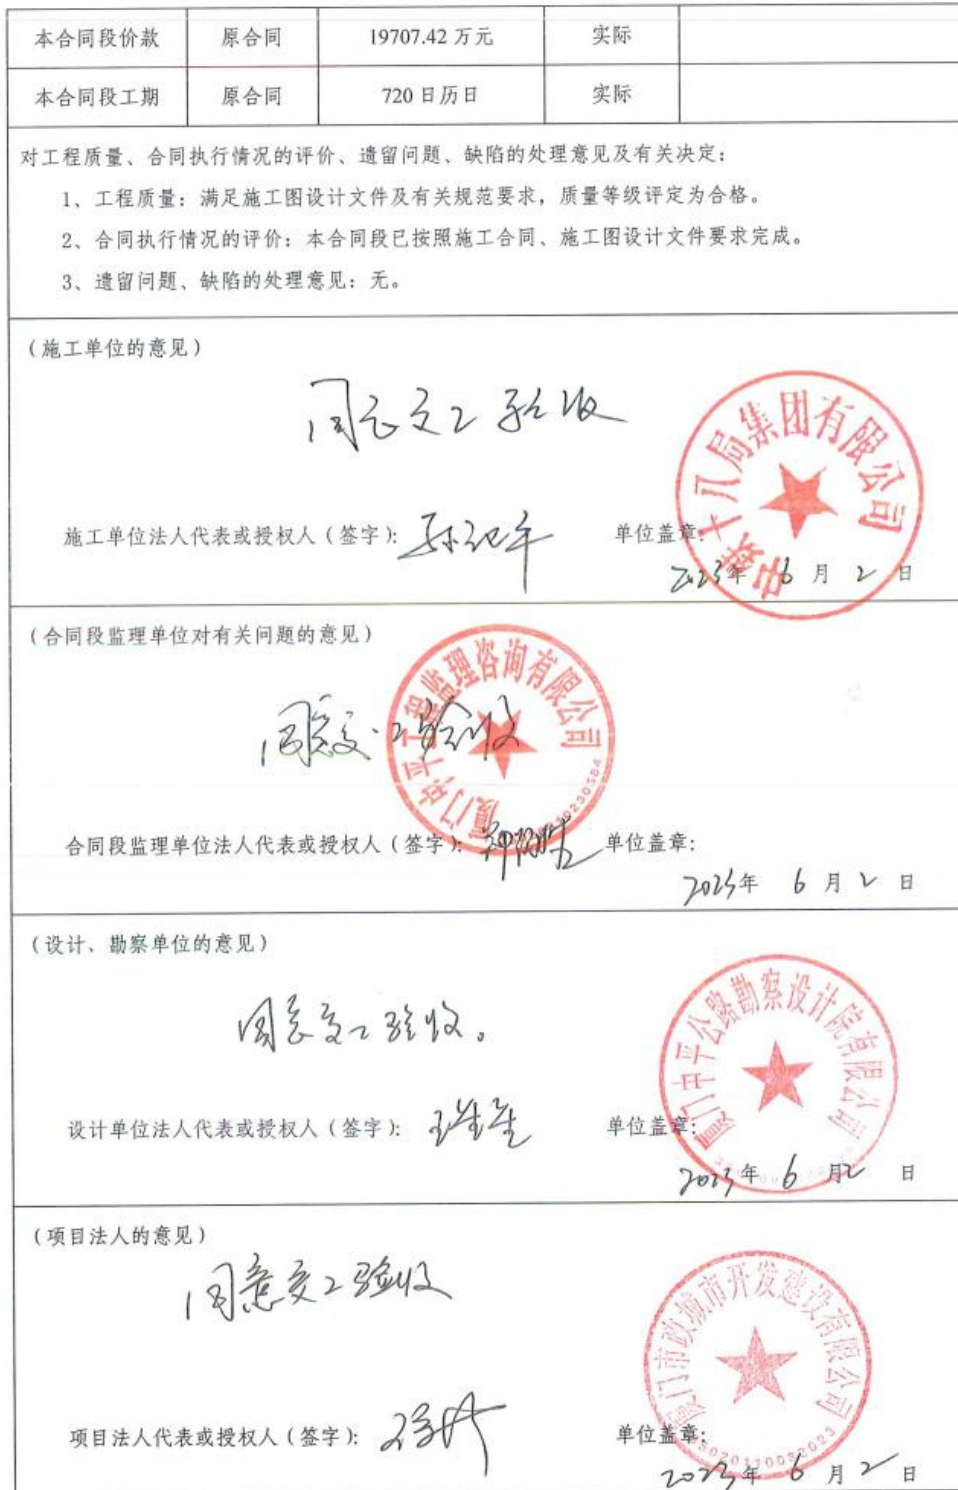 本合同段价款 原合同 19707.42 万元 实际
本合同段工期 原合同 720 日历日 实际
对工程质量、合同执行情况的评价、遗留问题、缺陷的处理意见及有关决定：
1、工程质量：满足施工图设计文件及有关规范要求，质量等级评定为合格。
2、合同执行情况的评价：本合同段已按照施工合同、施工图设计文件要求完成。
3、遗留问题、缺陷的处理意见：无。
（施工单位的意见）
同意交工验收
中铁十八局集团有限公司
施工单位法人代表或授权人（签字）： 单位盖章：
2023年 6 月 2 日
（合同段监理单位对有关问题的意见）
同意交工验收
厦门中平工程监理咨询有限公司
合同段监理单位法人代表或授权人（签字）： 单位盖章：
2023年 6 月 2 日
（设计、勘察单位的意见）
同意交工验收。
厦门中平公路勘察设计院有限公司
设计单位法人代表或授权人（签字）： 单位盖章：
2023年 6 月2 日
（项目法人的意见）
同意交工验收
厦门市政城市开发建设有限公司
项目法人代表或授权人（签字）： 单位盖章：
2023年 6 月 2 日